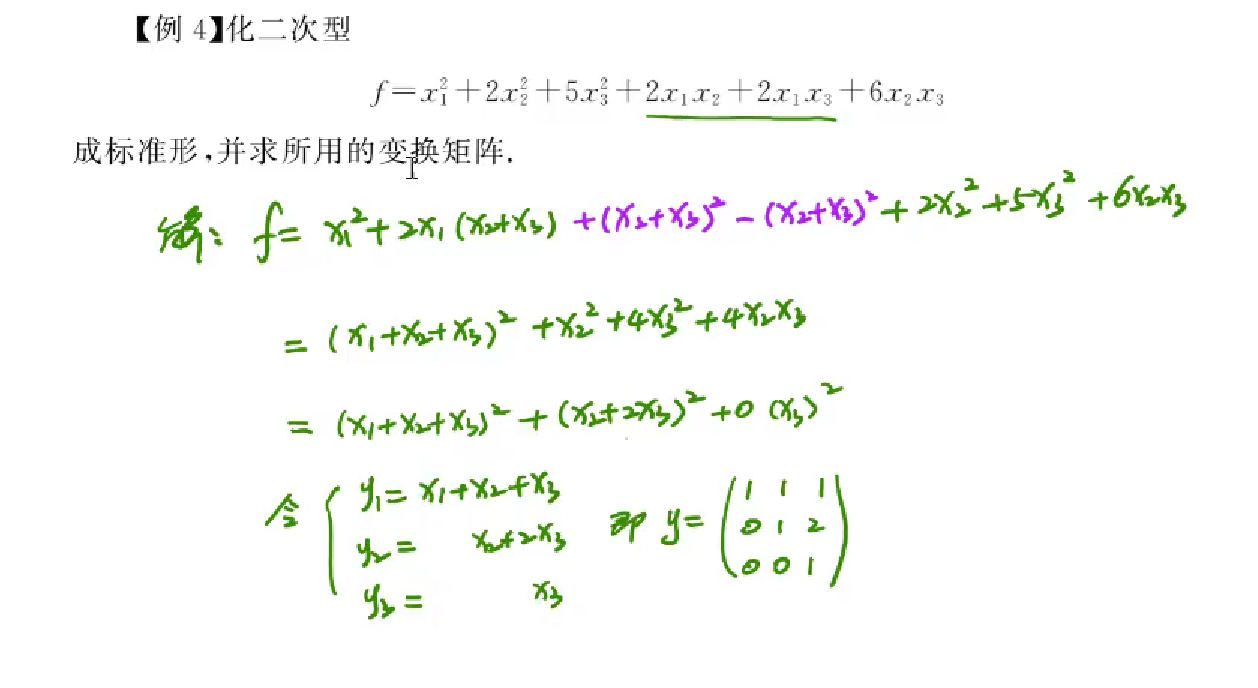 【例 4】化二次型
f=x₁²+2x₂²+5x₃²+2x₁x₂+2x₁x₃+6x₂x₃
成标准形,并求所用的变换矩阵.
解: f= x₁²+2x₁(x₂+x₃) +(x₂+x₃)²-(x₂+x₃)²+2x₂²+5x₃²+6x₂x₃
= (x₁+x₂+x₃)²+x₂²+4x₃²+4x₂x₃
= (x₁+x₂+x₃)²+(x₂+2x₃)²+0(x₃)²
令 { y₁= x₁+x₂+x₃ 即 y= ( 1 1 1
y₂= x₂+2x₃ 0 1 2
y₃= x₃ 0 0 1 )